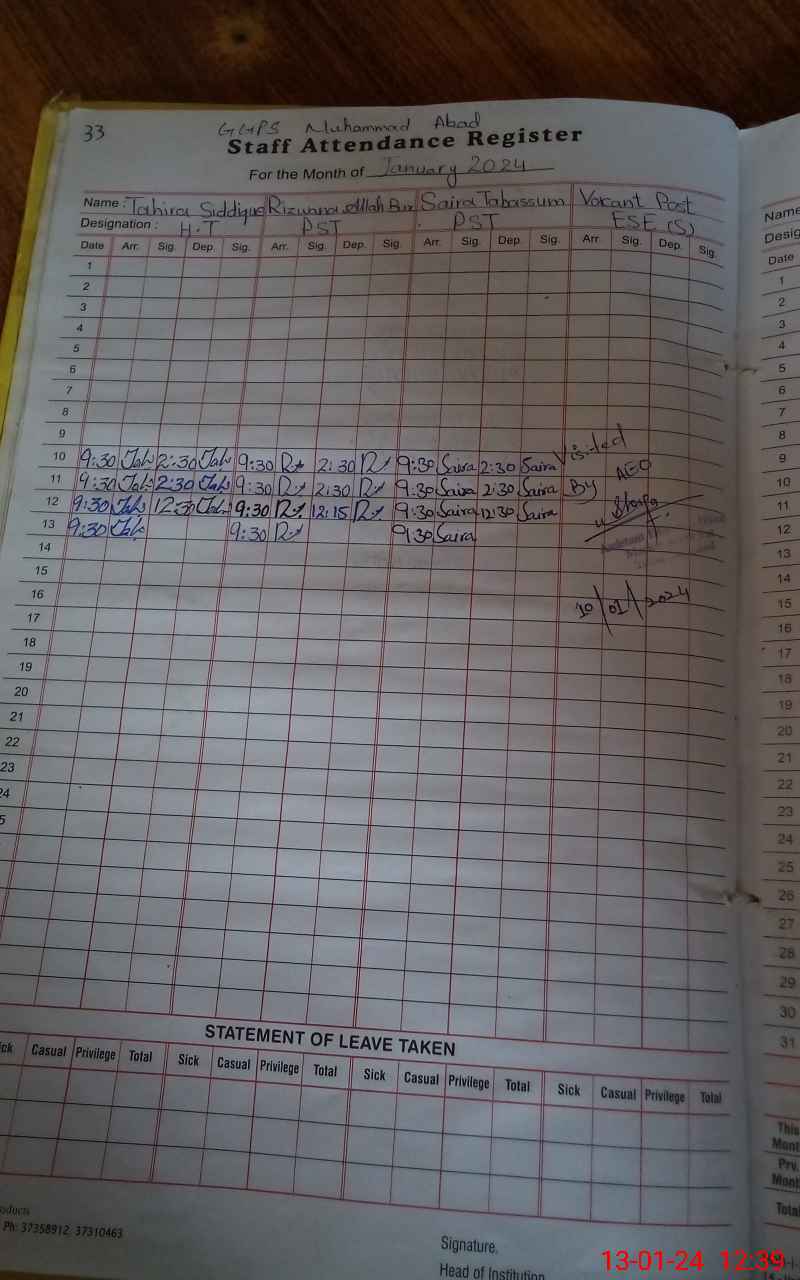 33
GGPS Muhammad Abad
Staff Attendance Register
For the Month of January 2024
Name : Tahira Siddique Rizwana Allah Bux Saira Tabassum Vacant Post
Designation : H.T PST PST ESE (S)
Date Arr. Sig. Dep. Sig. Arr. Sig. Dep. Sig. Arr. Sig. Dep. Sig. Arr. Sig. Dep. Sig.
1
2
3
4
5
6
7
8
9
10 9:30 2:30 9:30 2:30 9:30 Saira 2:30 Saira Visited
11 9:30 2:30 9:30 2:30 9:30 Saira 2:30 Saira By AEO
12 9:30 12:30 9:30 12:15 9:30 Saira 12:30 Saira
13 9:30 9:30 9:30 Saira
14
15
16 10/01/2024
17
18
19
20
21
22
23
24
5
STATEMENT OF LEAVE TAKEN
ick Casual Privilege Total Sick Casual Privilege Total Sick Casual Privilege Total Sick Casual Privilege Total
oducts
Ph: 37358912, 37310463
Signature.
Head of Institution
Name
Desig
Date
1
2
3
4
5
6
7
8
9
10
11
12
13
14
15
16
17
18
19
20
21
22
23
24
25
26
27
28
29
30
31
This
Mont
Prv.
Mont
Total
13-01-24 12:39